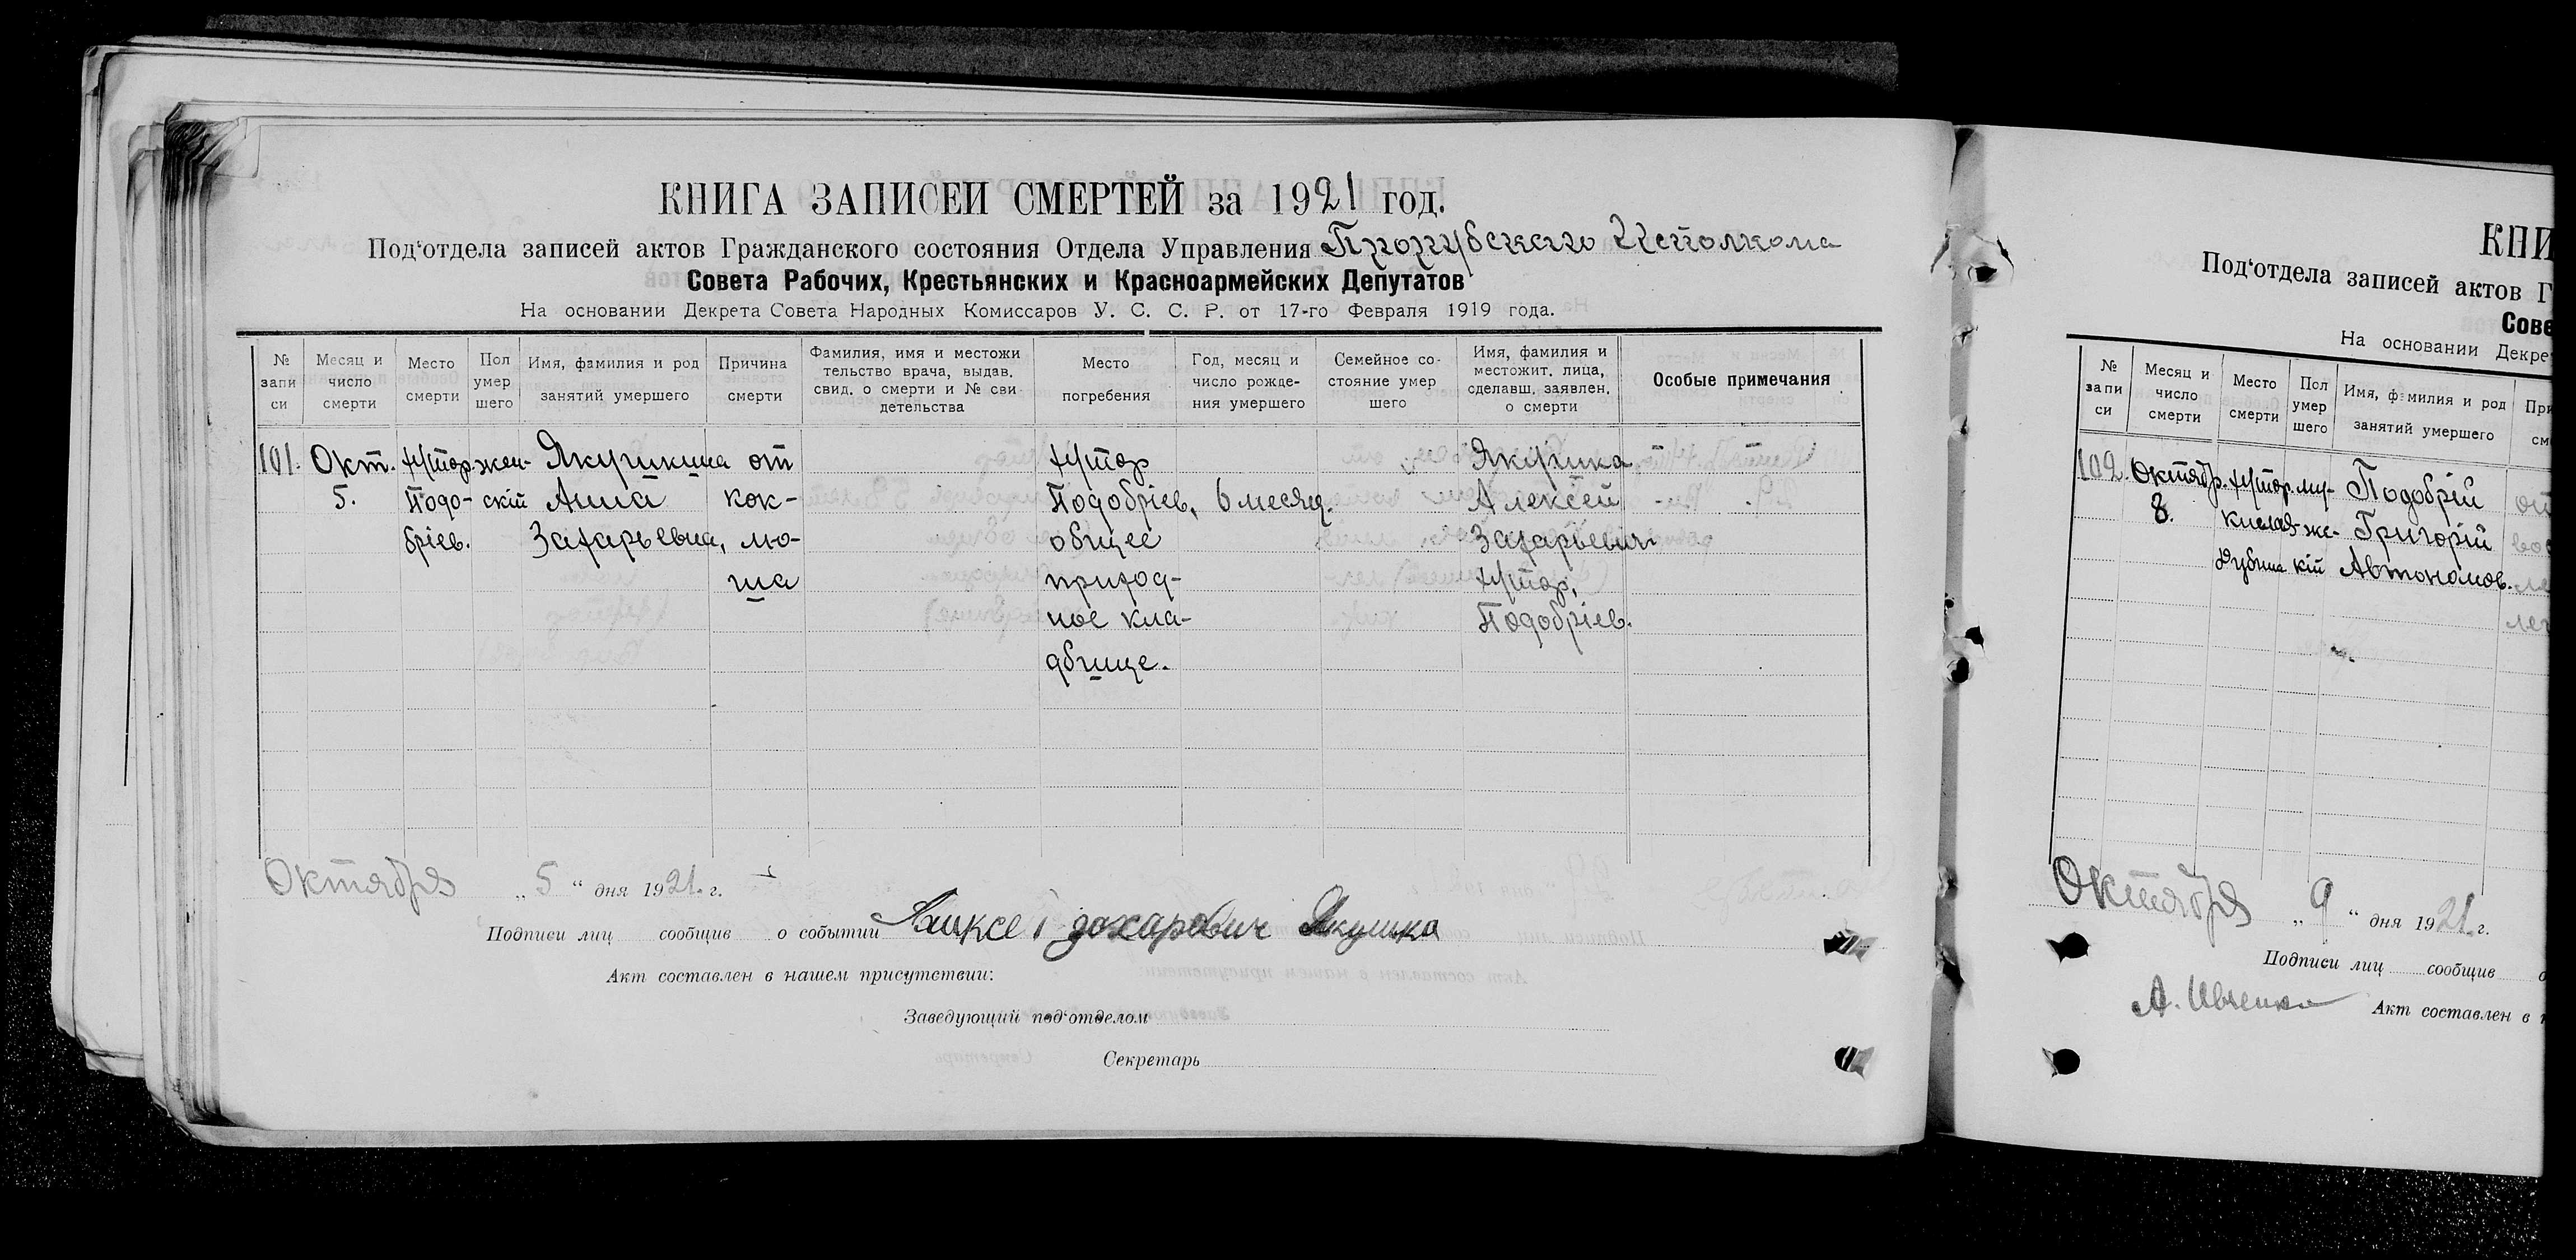 КНИГА ЗАПИСЕЙ СМЕРТЕЙ за 1921 год.
Под‘отдела записей актов Гражданского состояния Отдела Управления Исполкома
Совета Рабочих, Крестьянских и Красноармейских Депутатов
На основании Декрета Совета Народных Комиссаров У. С. С. Р. от 17-го Февраля 1919 года.
№ запи си
Месяц и число смерти
Место смерти
Пол умер шего
Имя, фамилия и род занятий умершего
Причина смерти
Фамилия, имя и местожи тельство врача, выдав. свид. о смерти и № сви детельства
Место погребения
Год, месяц и число рожде- ния умершего
Семейное со- стояние умер шего
Имя, фамилия и местожит. лица, сделавш. заявлен. о смерти
Особые примечания
101.
Окт.
5.
хутор.
Подо-
бріев.
жен-
скій
Якушкина
Анна
Захарьевна,
от
кок-
лю-
ша
хутор
Подобріев,
общее
приход-
ное кла-
дбище.
6 месяц.
Якушка
Алексей
Захарьевич
хутор,
Подобріев.
Октября „5“ дня 1921. г.
Подписи лиц сообщив о событии захарович Якушка
Акт составлен в нашем присутствии:
Заведующий под‘отделом
Секретарь
КНИ
Под‘отдела записей актов Г
Сове
На основании Декре
№ запи си
Месяц и число смерти
Место смерти
Пол умер шего
Имя, фамилия и род занятий умершего
При см
102.
Октябр.
8.
хутор.
му-
же-
кій
Подобрій
Григорій
Автономов.
Октября „9“ дня 1921. г.
Подписи лиц сообщив о
А. Ивченко Акт составлен в н